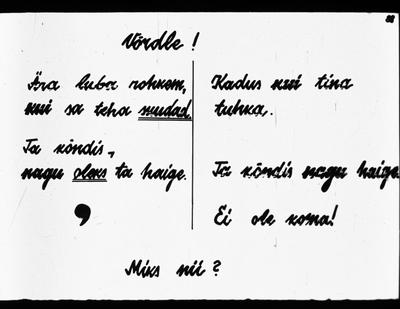 Võrdle!
Ära luba rohkem,
kui sa teha suudad.
Ta kõndis,
nagu oleks ta haige.
,
Kadus kui tina
tuhka.
Ta kõndis nagu haige.
Ei ole koma!
Miks nii?